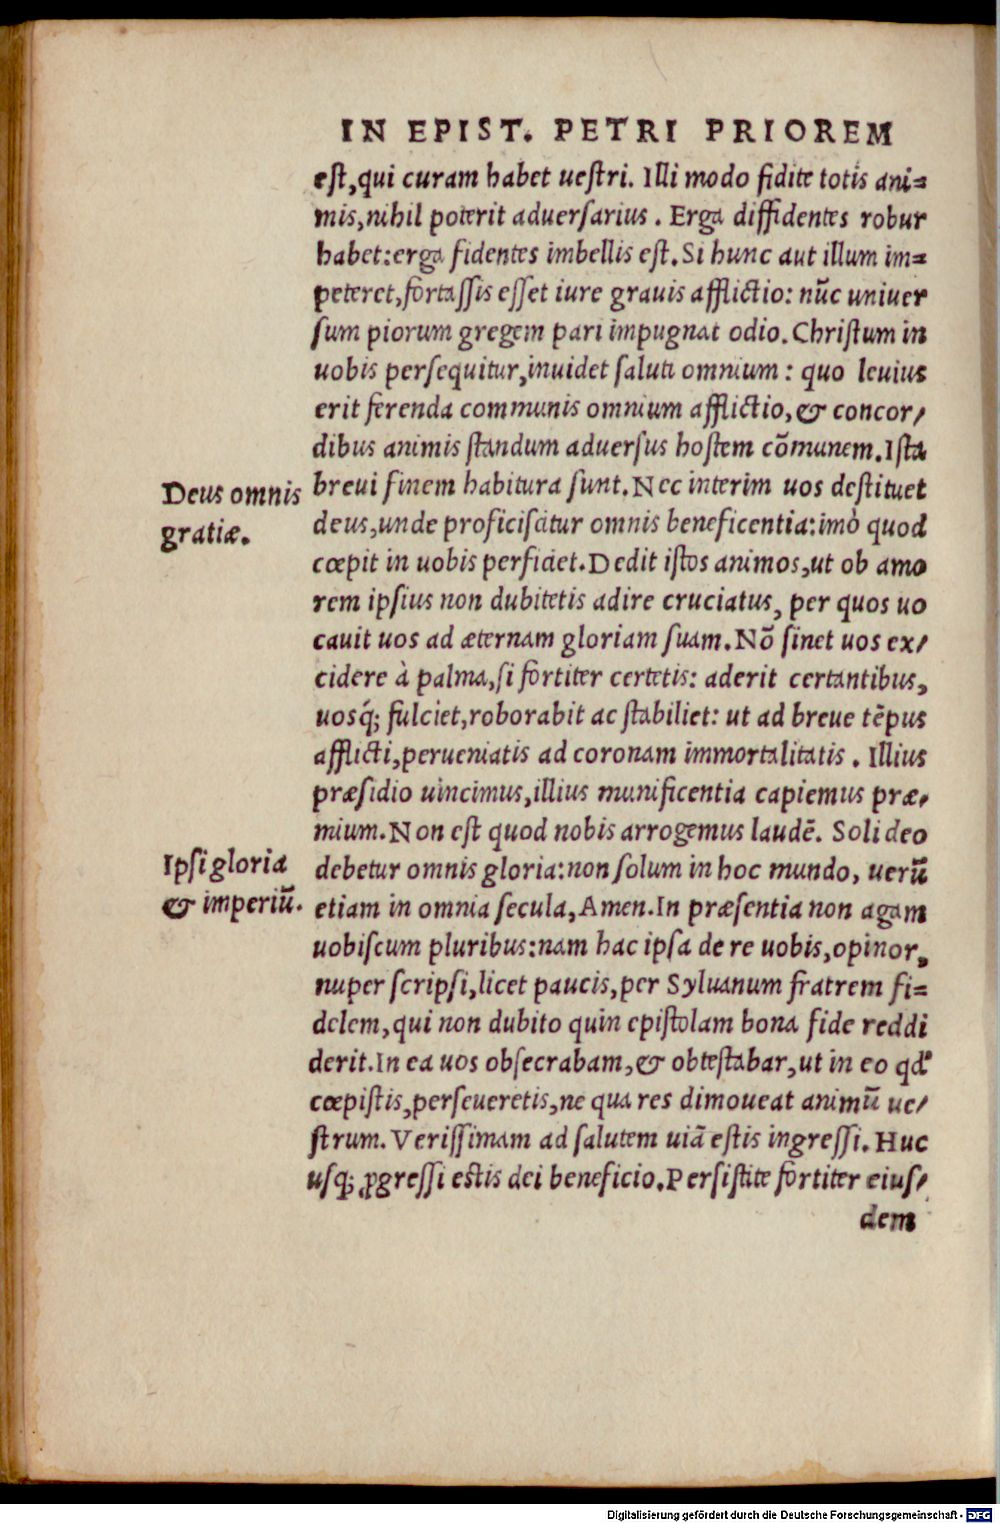 IN EPIST. PETRI PRIOREM
est, qui curam habet uestri. Illi modo fidite totis ani=
mis, nihil poterit aduersarius. Erga diffidentes robur
habet: erga fidentes imbellis est. Si hunc aut illum im=
peteret, fortassis esset iure grauis afflictio: nũc uniuer
sum piorum gregem pari impugnat odio. Christum in
uobis persequitur, inuidet saluti omnium: quo leuius
erit ferenda communis omnium afflictio, & concor/
dibus animis standum aduersus hostem cõmunem. Ista
Deus omnis
gratiæ.
breui finem habitura sunt. Nec interim uos destituet
deus, unde proficiscitur omnis beneficentia: imò quod
cœpit in uobis perficiet. Dedit istos animos, ut ob amo
rem ipsius non dubitetis adire cruciatus, per quos uo
cauit uos ad æternam gloriam suam. Nõ sinet uos ex/
cidere à palma, si fortiter certetis: aderit certantibus,
uosq́; fulciet, roborabit ac stabiliet: ut ad breue tẽpus
afflicti, perueniatis ad coronam immortalitatis. Illius
præsidio uincimus, illius munificentia capiemus præ/
mium. Non est quod nobis arrogemus laudẽ. Soli deo
Ipsi gloria
& imperiũ.
debetur omnis gloria: non solum in hoc mundo, uerũ
etiam in omnia secula, Amen. In præsentia non agam
uobiscum pluribus: nam hac ipsa de re uobis, opinor,
nuper scripsi, licet paucis, per Syluanum fratrem fi=
delem, qui non dubito quin epistolam bona fide reddi
derit. In ea uos obsecrabam, & obtestabar, ut in eo qď
cœpistis, perseueretis, ne qua res dimoueat animũ ue/
strum. Verissimam ad salutem uiã estis ingressi. Huc
usq; ꝓgressi estis dei beneficio. Persistite fortiter eius/
dem
Digitalisierung gefördert durch die Deutsche Forschungsgemeinschaft - DFG